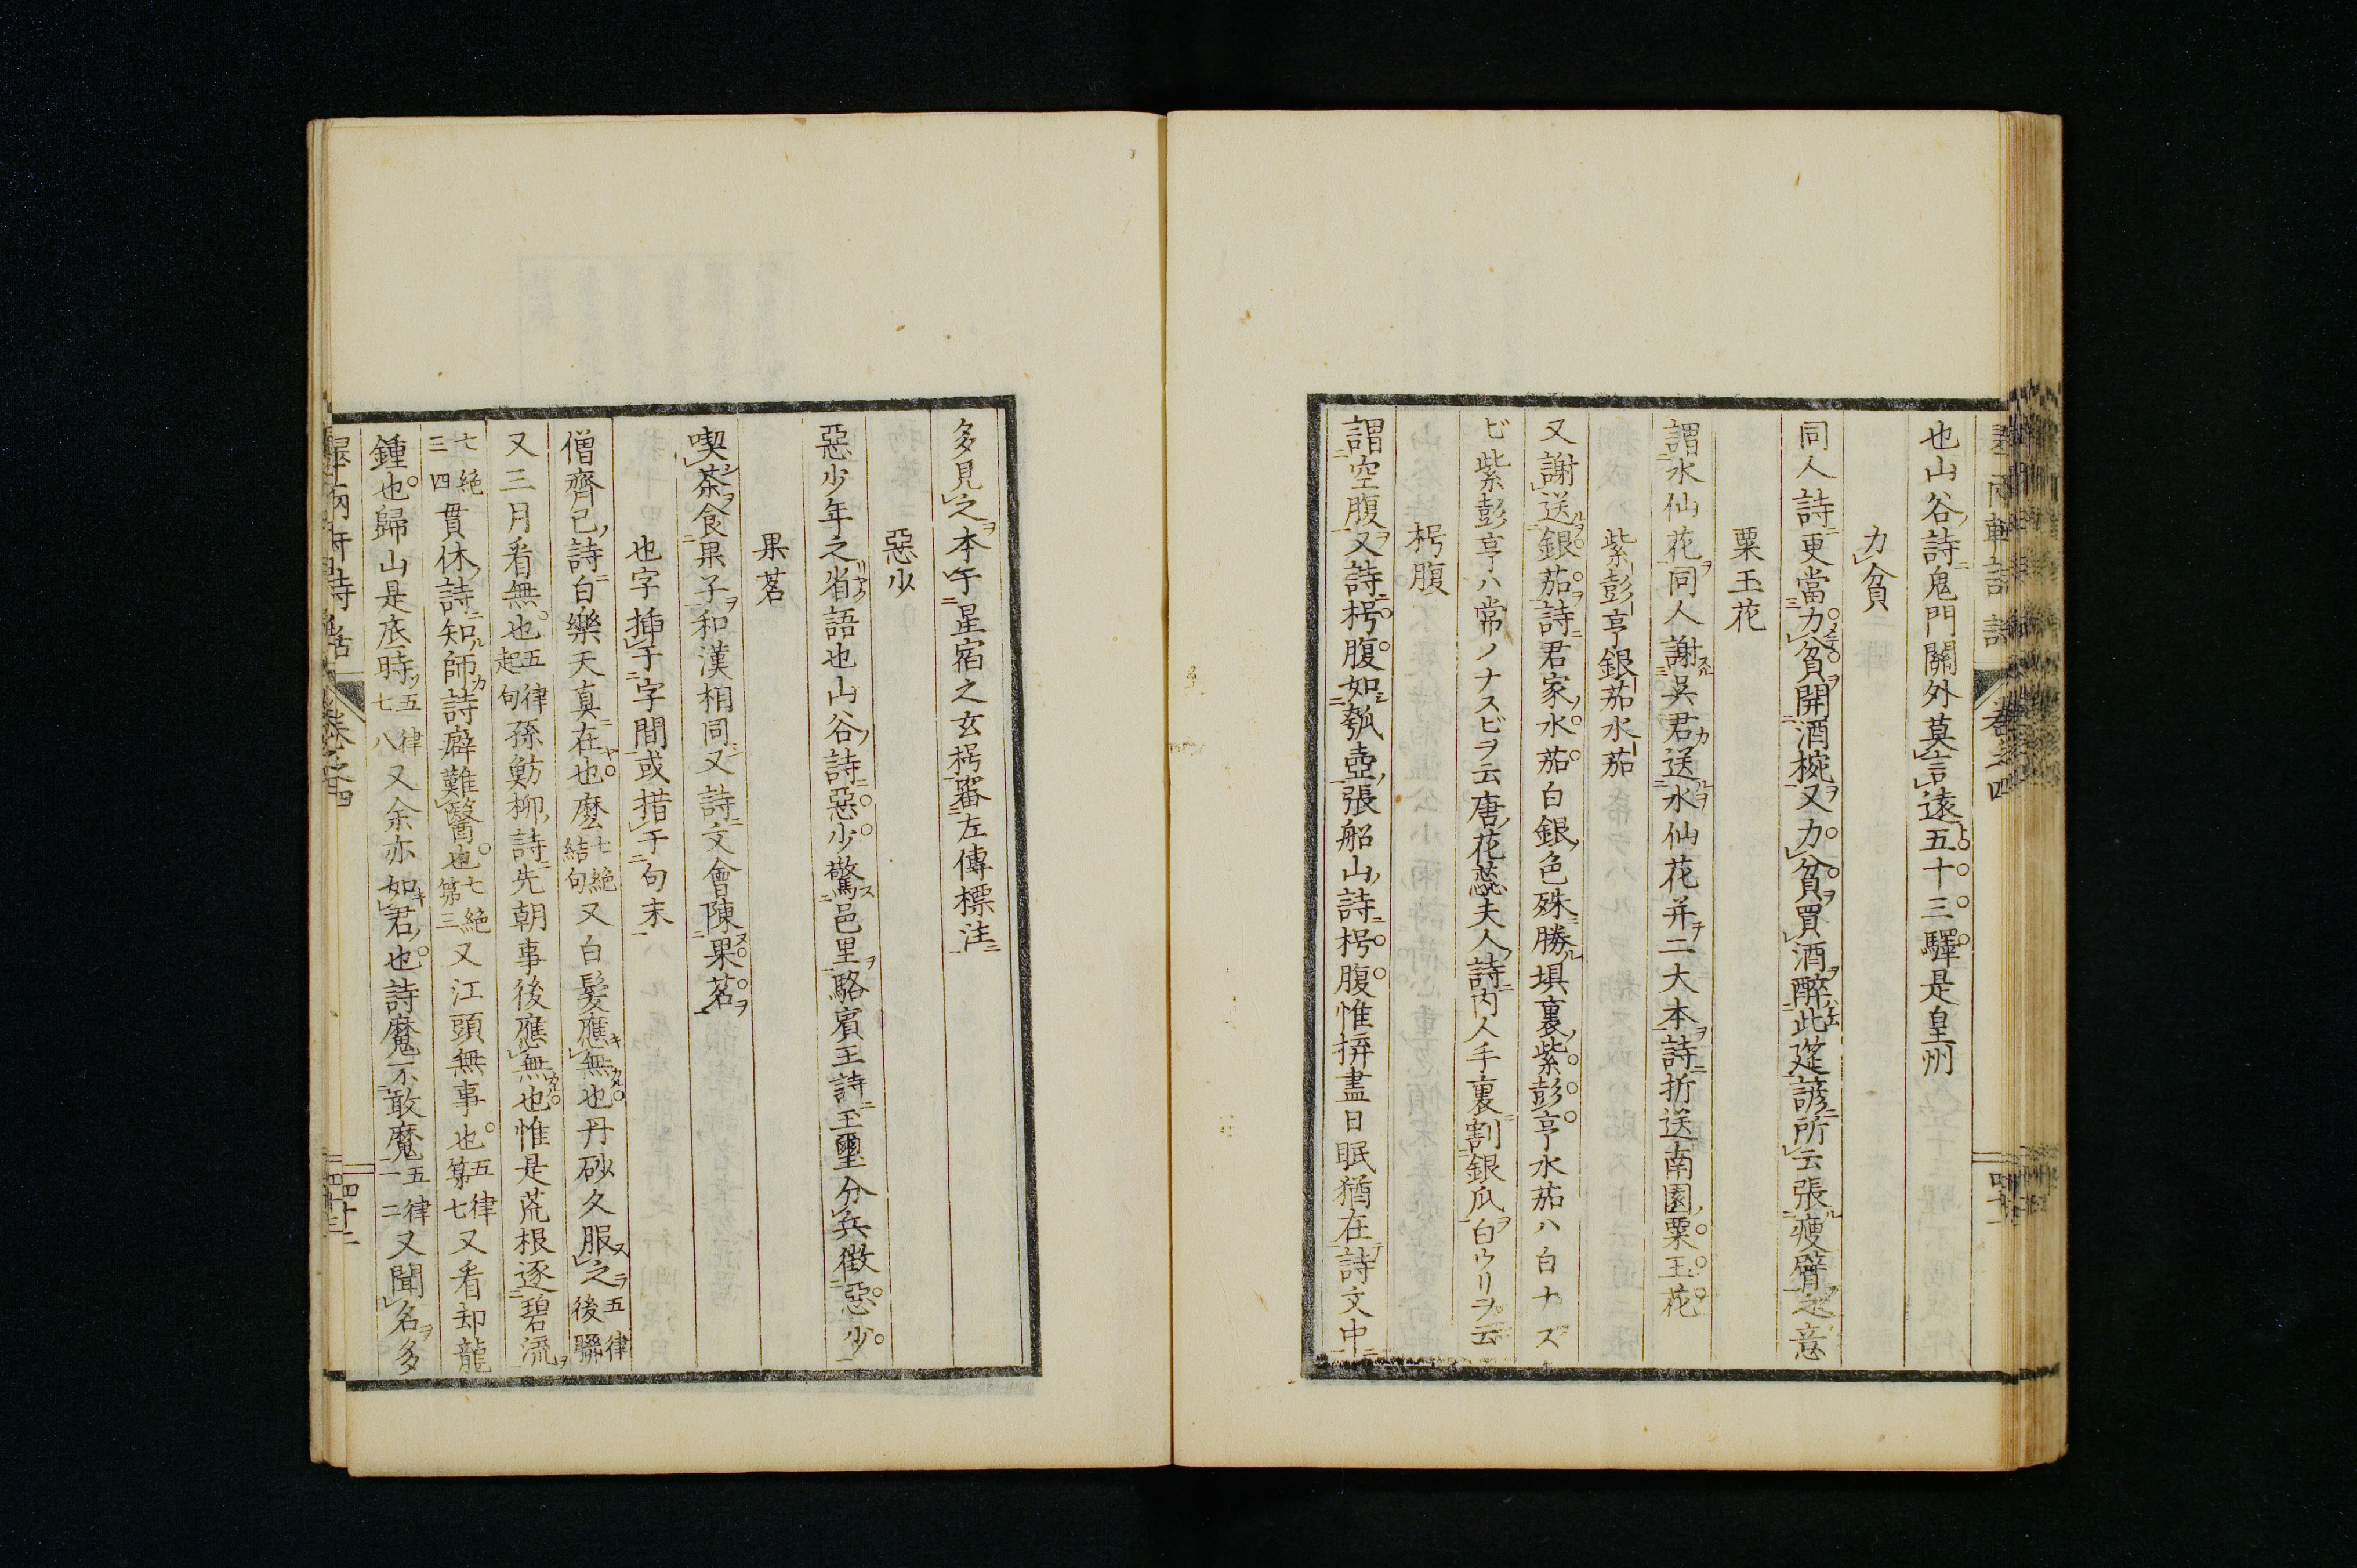 也山谷詩鬼門關外莫言遠五十三驛是皇州
力貧
同人詩更當力貧開酒椀又力貧買酒醉此筵諺所云張瘦臂之意
粟玉花
謂水仙花同人謝吳君送水仙花并二大本詩折送南園粟玉花
紫彭亨銀茄水茄
又謝送銀茄詩君家水茄白銀色殊勝埧裏紫彭亨水茄ハ白ナス
ビ紫彭亨ハ常ノナスビヲ云唐花蕊夫人詩内人手裏割銀瓜白ウリヲ云
枵腹
謂空腹又詩枵腹如瓠壺張船山詩枵腹惟拚盡日眠猶在詩文中
多見之本于星宿之玄枵審左傳標注
惡少
惡少年之省語也山谷詩惡少驚邑里駱賓王詩玉璽分兵徵惡少
果茗
喫茶食果子和漢相同又詩文會陳果茗
也字挿于字間或措于句末
僧齊己詩白樂天真在也麼七絶結句又白髮應無也丹砂久服之五律後聯
又三月看無也五律起句孫魴柳詩先朝事後應無也惟是荒根逐碧流
七絶三四貫休詩知師詩癖難醫也七絶第三又江頭無事也五律第七又看却龍
鍾也歸山是底時五律七八又余亦如君也詩魔不敢魔五律一二又聞名多
卷之四
四十二